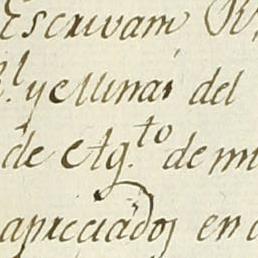 Escrivano R
R.l y Minas del
de Ag.to de mi
apreciados en